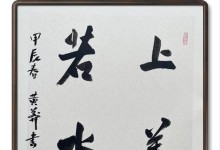 上善
若水
甲辰春 黄莽书